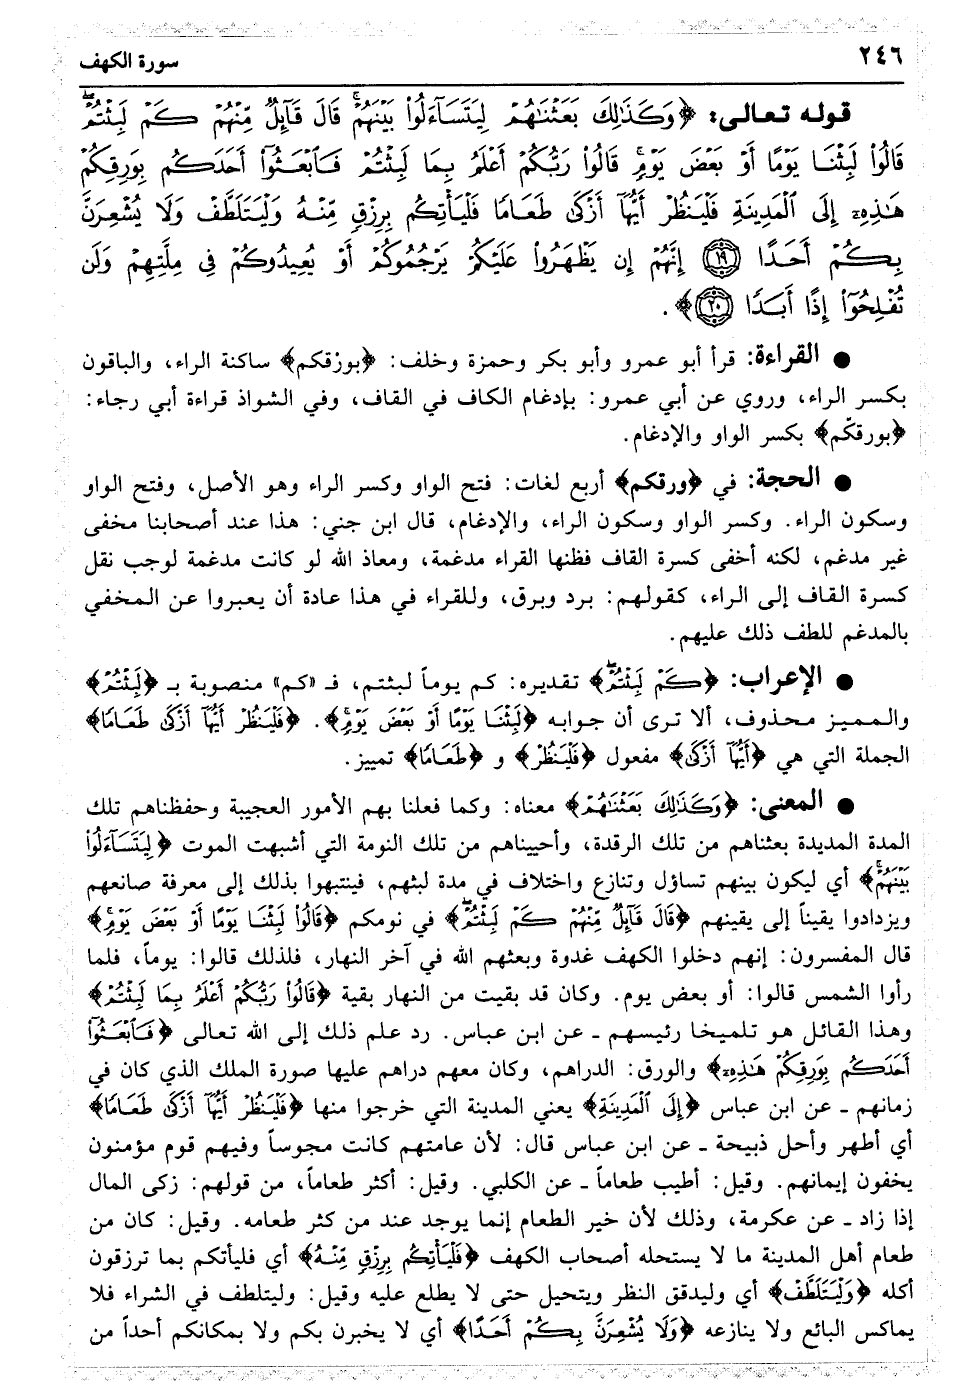 ٢٤٦ سورة الكهف
قوله تعالى: ﴿وَكَذَٰلِكَ بَعَثْنَاهُمْ لِيَتَسَاءَلُوا بَيْنَهُمْ ۚ قَالَ قَائِلٌ مِنْهُمْ كَمْ لَبِثْتُمْ ۖ
قَالُوا لَبِثْنَا يَوْمًا أَوْ بَعْضَ يَوْمٍ ۚ قَالُوا رَبُّكُمْ أَعْلَمُ بِمَا لَبِثْتُمْ فَابْعَثُوا أَحَدَكُمْ بِوَرِقِكُمْ
هَٰذِهِ إِلَى الْمَدِينَةِ فَلْيَنْظُرْ أَيُّهَا أَزْكَىٰ طَعَامًا فَلْيَأْتِكُمْ بِرِزْقٍ مِنْهُ وَلْيَتَلَطَّفْ وَلَا يُشْعِرَنَّ
بِكُمْ أَحَدًا ١٩ إِنَّهُمْ إِنْ يَظْهَرُوا عَلَيْكُمْ يَرْجُمُوكُمْ أَوْ يُعِيدُوكُمْ فِي مِلَّتِهِمْ وَلَنْ
تُفْلِحُوا إِذًا أَبَدًا ٢٠﴾.
● القراءة: قرأ أبو عمرو وأبو بكر وحمزة وخلف: ﴿بورْقكم﴾ ساكنة الراء، والباقون
بكسر الراء، وروي عن أبي عمرو: بإدغام الكاف في القاف، وفي الشواذ قراءة أبي رجاء:
﴿بورقكّم﴾ بكسر الواو والإدغام.
● الحجة: في ﴿ورقكم﴾ أربع لغات: فتح الواو وكسر الراء وهو الأصل، وفتح الواو
وسكون الراء. وكسر الواو وسكون الراء، والإدغام، قال ابن جني: هذا عند أصحابنا مخفى
غير مدغم، لكنه أخفى كسرة القاف فظنها القراء مدغمة، ومعاذ الله لو كانت مدغمة لوجب نقل
كسرة القاف إلى الراء، كقولهم: برد وبرق، وللقراء في هذا عادة أن يعبروا عن المخفي
بالمدغم للطف ذلك عليهم.
● الإعراب: ﴿كَمْ لَبِثْتُمْ ۖ﴾ تقديره: كم يوماً لبثتم، فـ «كم» منصوبة بـ ﴿لَبِثْتُمْ﴾
والمميز محذوف، ألا ترى أن جوابه ﴿لَبِثْنَا يَوْمًا أَوْ بَعْضَ يَوْمٍ ۚ﴾. ﴿فَلْيَنْظُرْ أَيُّهَا أَزْكَىٰ طَعَامًا﴾
الجملة التي هي ﴿أَيُّهَا أَزْكَىٰ﴾ مفعول ﴿فَلْيَنْظُرْ﴾ و ﴿طَعَامًا﴾ تمييز.
● المعنى: ﴿وَكَذَٰلِكَ بَعَثْنَاهُمْ﴾ معناه: وكما فعلنا بهم الأمور العجيبة وحفظناهم تلك
المدة المديدة بعثناهم من تلك الرقدة، وأحييناهم من تلك النومة التي أشبهت الموت ﴿لِيَتَسَاءَلُوا
بَيْنَهُمْ ۚ﴾ أي ليكون بينهم تساؤل وتنازع واختلاف في مدة لبثهم، فينتبهوا بذلك إلى معرفة صانعهم
ويزدادوا يقيناً إلى يقينهم ﴿قَالَ قَائِلٌ مِنْهُمْ كَمْ لَبِثْتُمْ ۖ﴾ في نومكم ﴿قَالُوا لَبِثْنَا يَوْمًا أَوْ بَعْضَ يَوْمٍ ۚ﴾
قال المفسرون: إنهم دخلوا الكهف غدوة وبعثهم الله في آخر النهار، فلذلك قالوا: يوماً، فلما
رأوا الشمس قالوا: أو بعض يوم. وكان قد بقيت من النهار بقية ﴿قَالُوا رَبُّكُمْ أَعْلَمُ بِمَا لَبِثْتُمْ﴾
وهذا القائل هو تلميخا رئيسهم ـ عن ابن عباس. رد علم ذلك إلى الله تعالى ﴿فَابْعَثُوا
أَحَدَكُمْ بِوَرِقِكُمْ هَٰذِهِ﴾ والورق: الدراهم، وكان معهم دراهم عليها صورة الملك الذي كان في
زمانهم ـ عن ابن عباس ﴿إِلَى الْمَدِينَةِ﴾ يعني المدينة التي خرجوا منها ﴿فَلْيَنْظُرْ أَيُّهَا أَزْكَىٰ طَعَامًا﴾
أي أطهر وأحل ذبيحة ـ عن ابن عباس قال: لأن عامتهم كانت مجوساً وفيهم قوم مؤمنون
يخفون إيمانهم. وقيل: أطيب طعاماً ـ عن الكلبي. وقيل: أكثر طعاماً، من قولهم: زكى المال
إذا زاد ـ عن عكرمة، وذلك لأن خير الطعام إنما يوجد عند من كثر طعامه. وقيل: كان من
طعام أهل المدينة ما لا يستحله أصحاب الكهف ﴿فَلْيَأْتِكُمْ بِرِزْقٍ مِنْهُ﴾ أي فليأتكم بما ترزقون
أكله ﴿وَلْيَتَلَطَّفْ﴾ أي وليدقق النظر ويتحيل حتى لا يطلع عليه وقيل: وليتلطف في الشراء فلا
يماكس البائع ولا ينازعه ﴿وَلَا يُشْعِرَنَّ بِكُمْ أَحَدًا﴾ أي لا يخبرن بكم ولا بمكانكم أحداً من